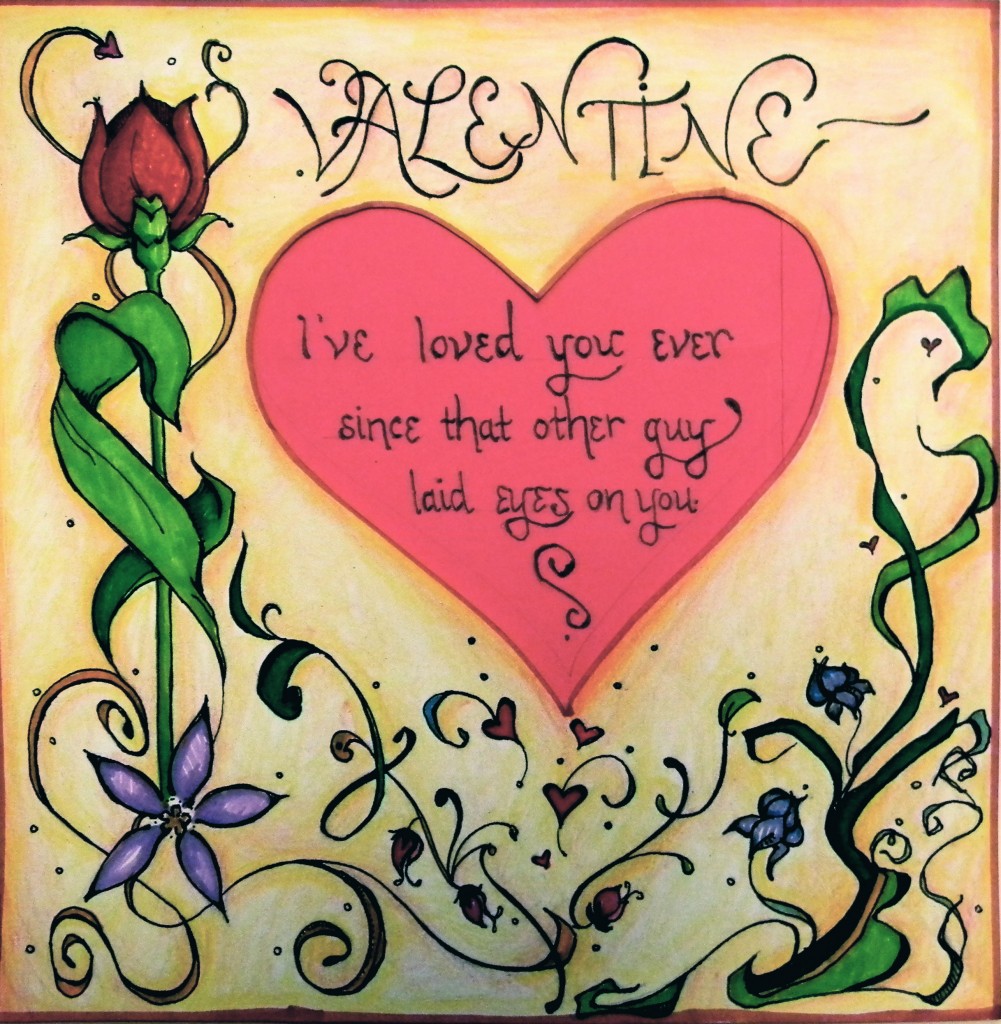 VALENTINE
I've loved you ever
since that other guy
laid eyes on you.